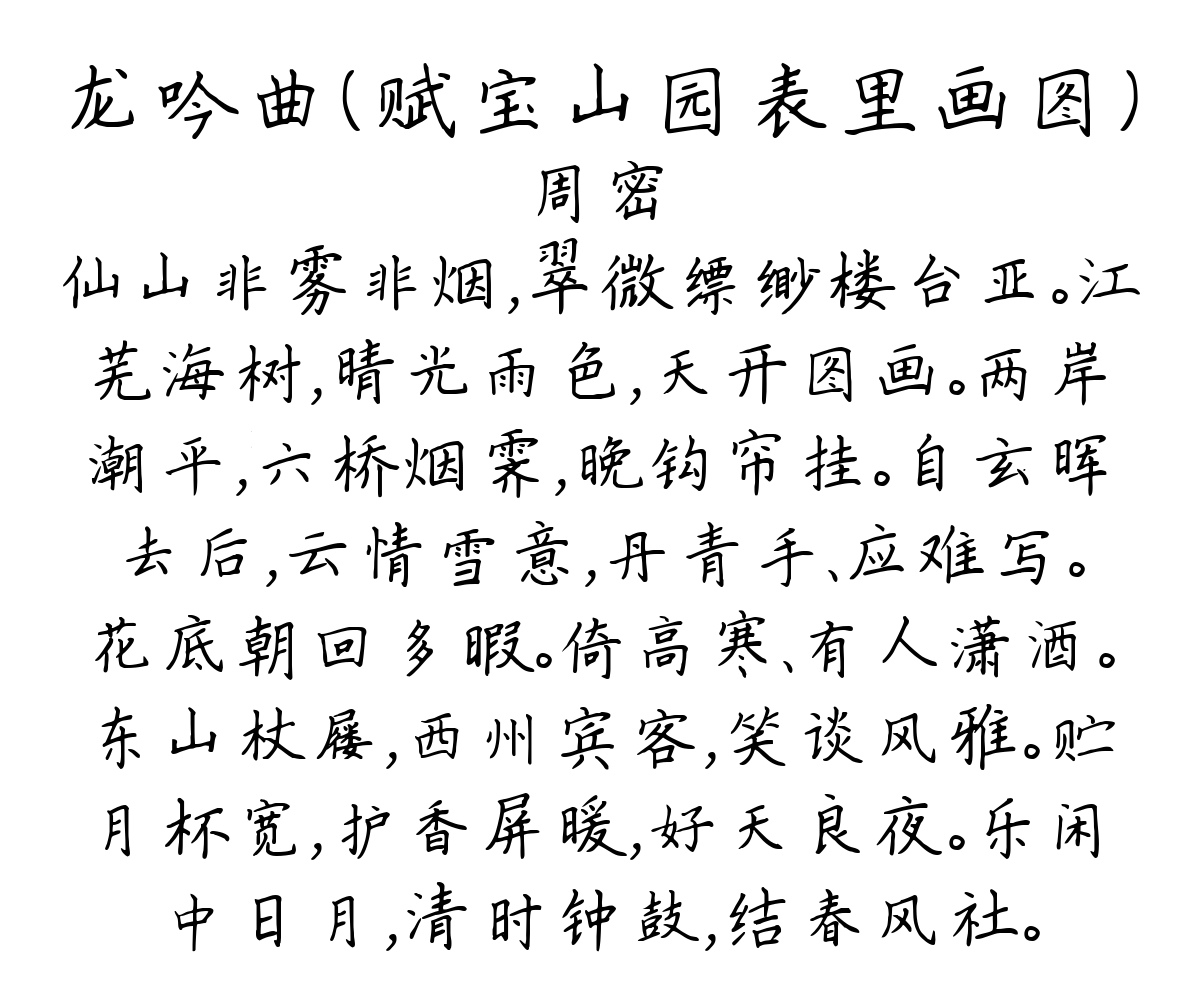 龙吟曲(赋宝山园表里画图)
周密
仙山非雾非烟,翠微缥缈楼台亚。江
芜海树,晴光雨色,天开图画。两岸
潮平,六桥烟霁,晚钩帘挂。自玄晖
去后,云情雪意,丹青手、应难写。
花底朝回多暇。倚高寒、有人潇洒。
东山杖屦,西州宾客,笑谈风雅。贮
月杯宽,护香屏暖,好天良夜。乐闲
中日月,清时钟鼓,结春风社。